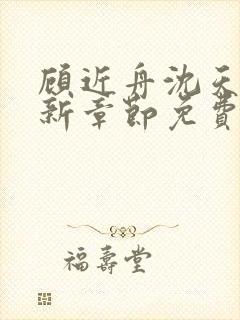 顾近舟沈天
新章节免费
福壽堂